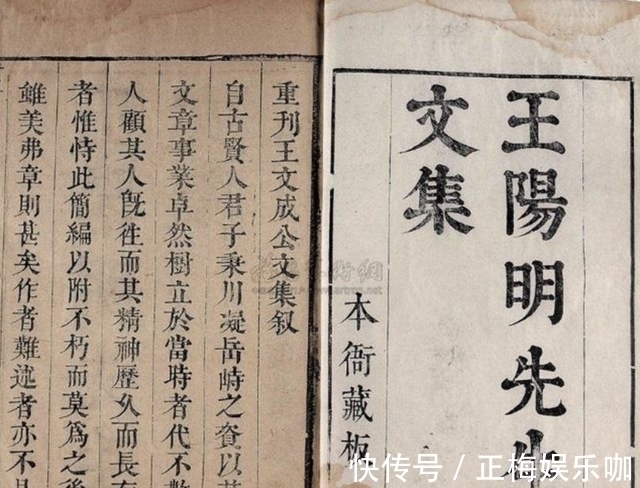 王陽明先生
文集
本衙藏板
重刊王文成公文集叙
自古賢人君子秉川凝岳峙之資以其
文章事業卓然樹立於當時者代不數
人顧其人旣徃而其精神歷久而長存
者惟恃此簡編以附不朽而莫為之後
雖美弗章則甚矣作者難述者亦不易
快传号 / 正梅娱乐咖